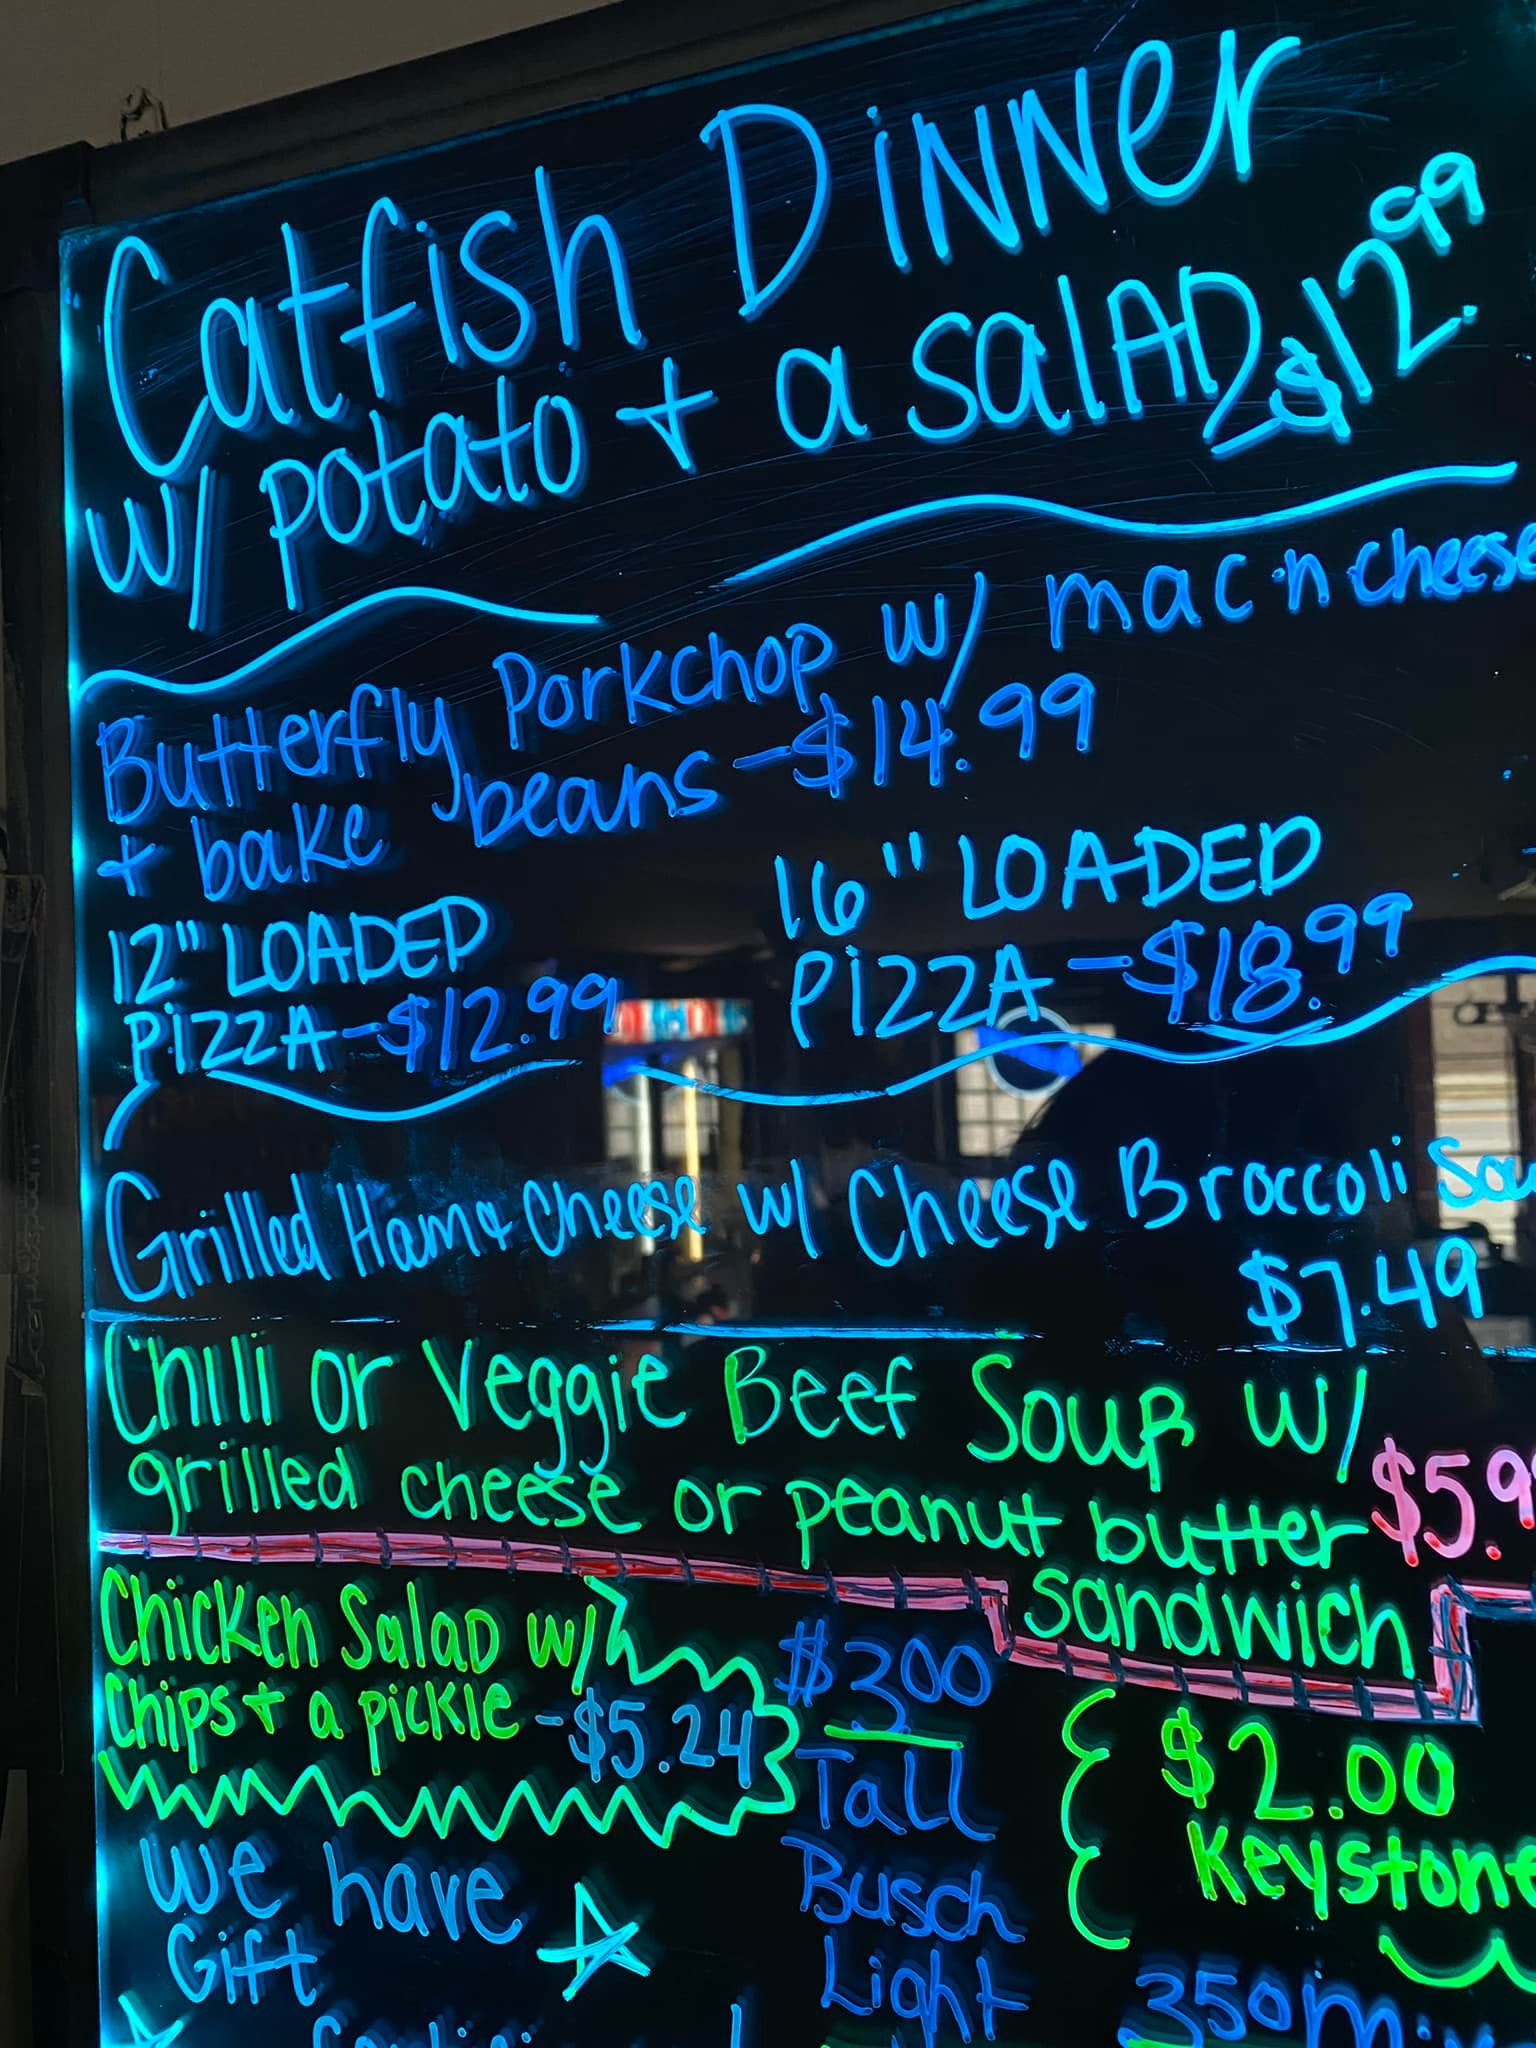 Catfish Dinner
w/ potato + a salAD $12.99
Butterfly Porkchop w/ mac n cheese
+ bake beans - $14.99
12" LOADED
PIZZA - $12.99
16" LOADED
PIZZA - $18.99
Grilled Ham & Cheese w/ Cheese Broccoli
$7.49
Chili or Veggie Beef Soup w/
grilled cheese or peanut butter
sandwich
Chicken Salad w/
Chips + a pickle - $5.24
$3.00
Tall
Busch
Light
$2.00
Keystone
We have
Gift